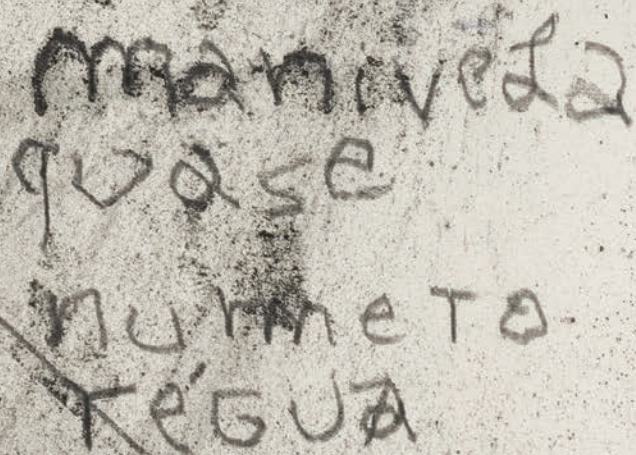 manivela
quase
numero
régua